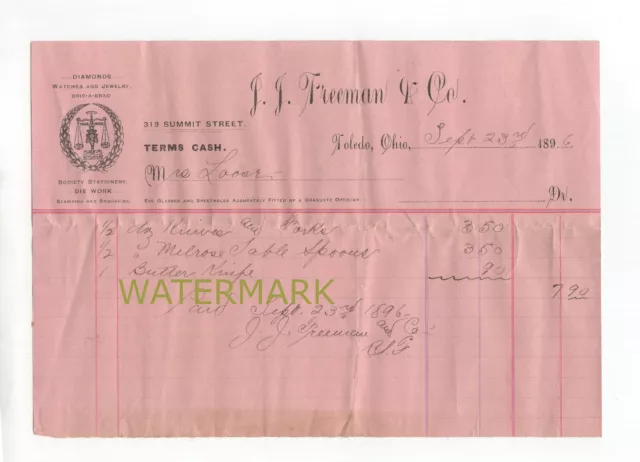 DIAMONDS
WATCHES AND JEWELRY.
BRIC-A-BRAC
J. J. Freeman & Co.
313 SUMMIT STREET.
TERMS CASH.
Toledo, Ohio, Sept 23rd 1896
Mrs Loose
SOCIETY STATIONERY.
DIE WORK
STAMPING AND ENGRAVING.
EYE GLASSES AND SPECTACLES ACCURATELY FITTED BY A GRADUATE OPTICIAN.
Dr.
1/2 dz Knives and Forks 3.50
1/2 " Melrose Table Spoons 3.50
1 Butter Knife 90
7.90
WATERMARK
Paid Sept. 23rd 1896.
J. J. Freeman and Co